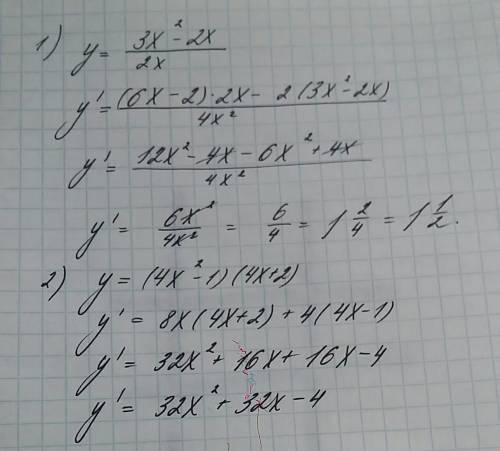 1) y = (3x² - 2x)/(2x)
y' = ((6x - 2)·2x - 2(3x² - 2x))/(4x²)
y' = (12x² - 4x - 6x² + 4x)/(4x²)
y' = 6x²/4x² = 6/4 = 1 2/4 = 1 1/2.
2) y = (4x² - 1)(4x + 2)
y' = 8x(4x + 2) + 4(4x - 1)
y' = 32x² + 16x + 16x - 4
y' = 32x² + 32x - 4